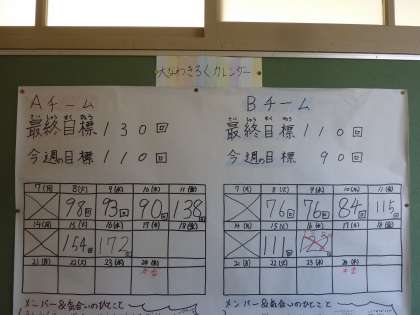 大なわきろくカレンダー
Aチーム
最終目標130回
今週の目標110回
7(月) 8(火) 9(水) 10(木) 11(金)
98回 93回 90回 138回
14(月) 15(火) 16(水) 17(木) 18(金)
154回 172回
21(月) 22(火) 23(水) 24(木)
本番
メンバー&気合いのひとこと
Bチーム
最終目標110回
今週の目標 90回
7(月) 8(火) 9(水) 10(木) 11(金)
76回 76回 84回 115回
14(月) 15(火) 16(水) 17(木) 18(金)
111回
21(月) 22(火) 23(水) 24(木)
本番
メンバー&気合いのひとこと